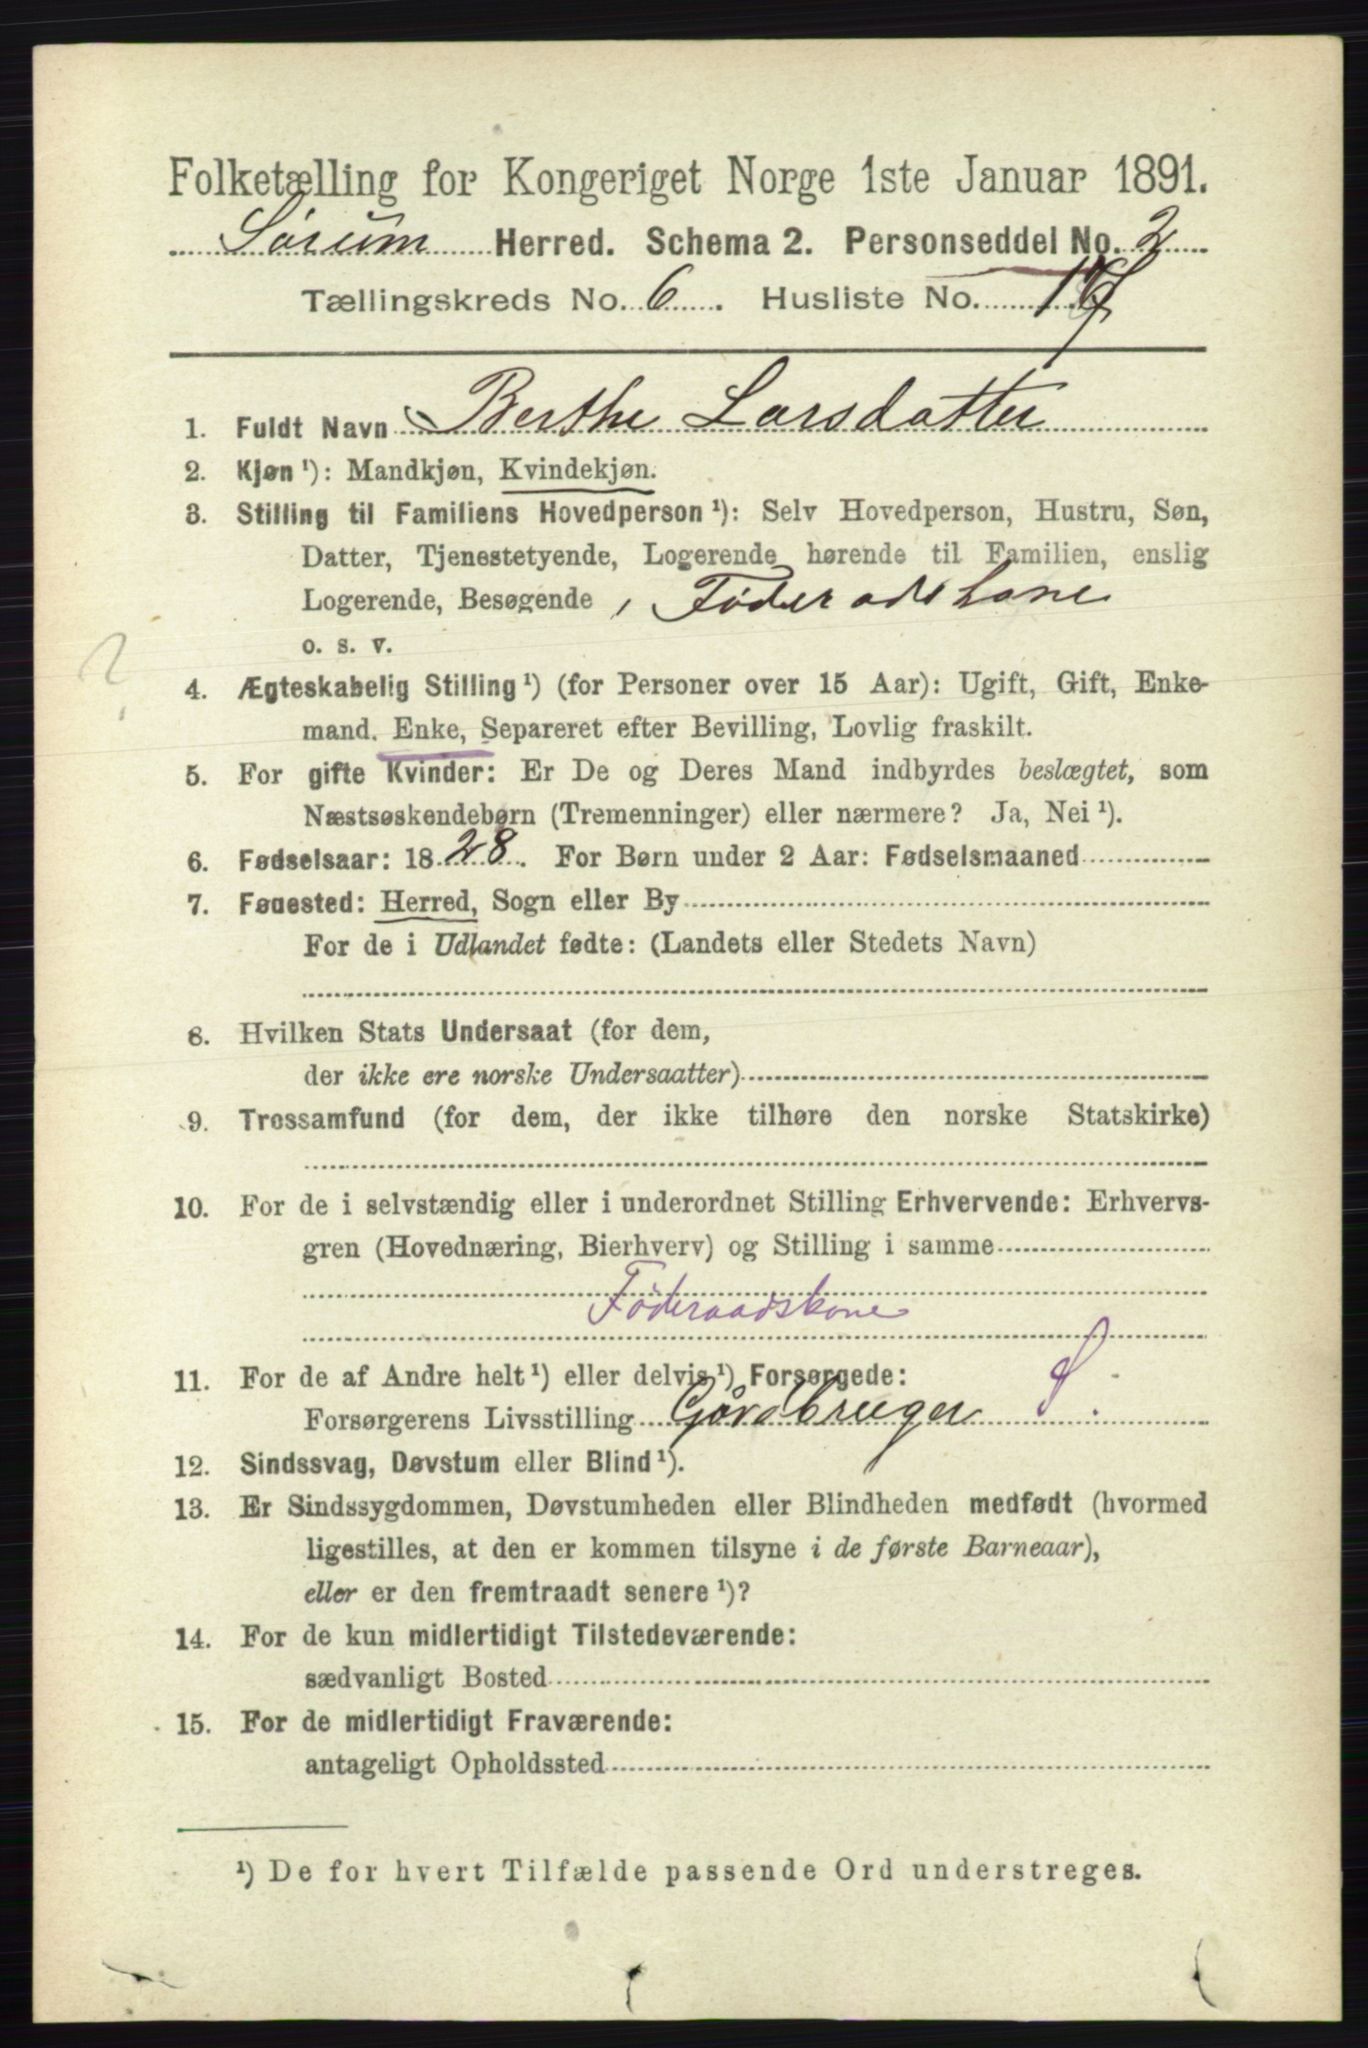 Folketælling for Kongeriget Norge 1ste Januar 1891.
Sørum Herred. Schema 2. Personseddel No. 2
Tællingskreds No. 6. Husliste No.
1. Fuldt Navn Berthe Larsdatter
2. Kjøn ¹): Mandkjøn, Kvindekjøn.
3. Stilling til Familiens Hovedperson ¹): Selv Hovedperson, Hustru, Søn,
Datter, Tjenestetyende, Logerende hørende til Familien, enslig
Logerende, Besøgende , Føderadskone
o. s. v.
4. Ægteskabelig Stilling ¹) (for Personer over 15 Aar): Ugift, Gift, Enke-
mand, Enke, Separeret efter Bevilling, Lovlig fraskilt.
5. For gifte Kvinder: Er De og Deres Mand indbyrdes beslægtet, som
Næstsøskendebørn (Tremenninger) eller nærmere? Ja, Nei ¹).
6. Fødselsaar: 1828. For Børn under 2 Aar: Fødselsmaaned
7. Fødested: Herred, Sogn eller By
For de i Udlandet fødte: (Landets eller Stedets Navn)
8. Hvilken Stats Undersaat (for dem,
der ikke ere norske Undersaatter)
9. Trossamfund (for dem, der ikke tilhøre den norske Statskirke)
10. For de i selvstændig eller i underordnet Stilling Erhvervende: Erhvervs-
gren (Hovednæring, Bierhverv) og Stilling i samme
Føderaadskone
11. For de af Andre helt ¹) eller delvis ¹) Forsørgede:
Forsørgerens Livsstilling Gårdbruger S.
12. Sindssvag, Døvstum eller Blind ¹).
13. Er Sindssygdommen, Døvstumheden eller Blindheden medfødt (hvormed
ligestilles, at den er kommen tilsyne i de første Barneaar),
eller er den fremtraadt senere ¹)?
14. For de kun midlertidigt Tilstedeværende:
sædvanligt Bosted
15. For de midlertidigt Fraværende:
antageligt Opholdssted
¹) De for hvert Tilfælde passende Ord understreges.